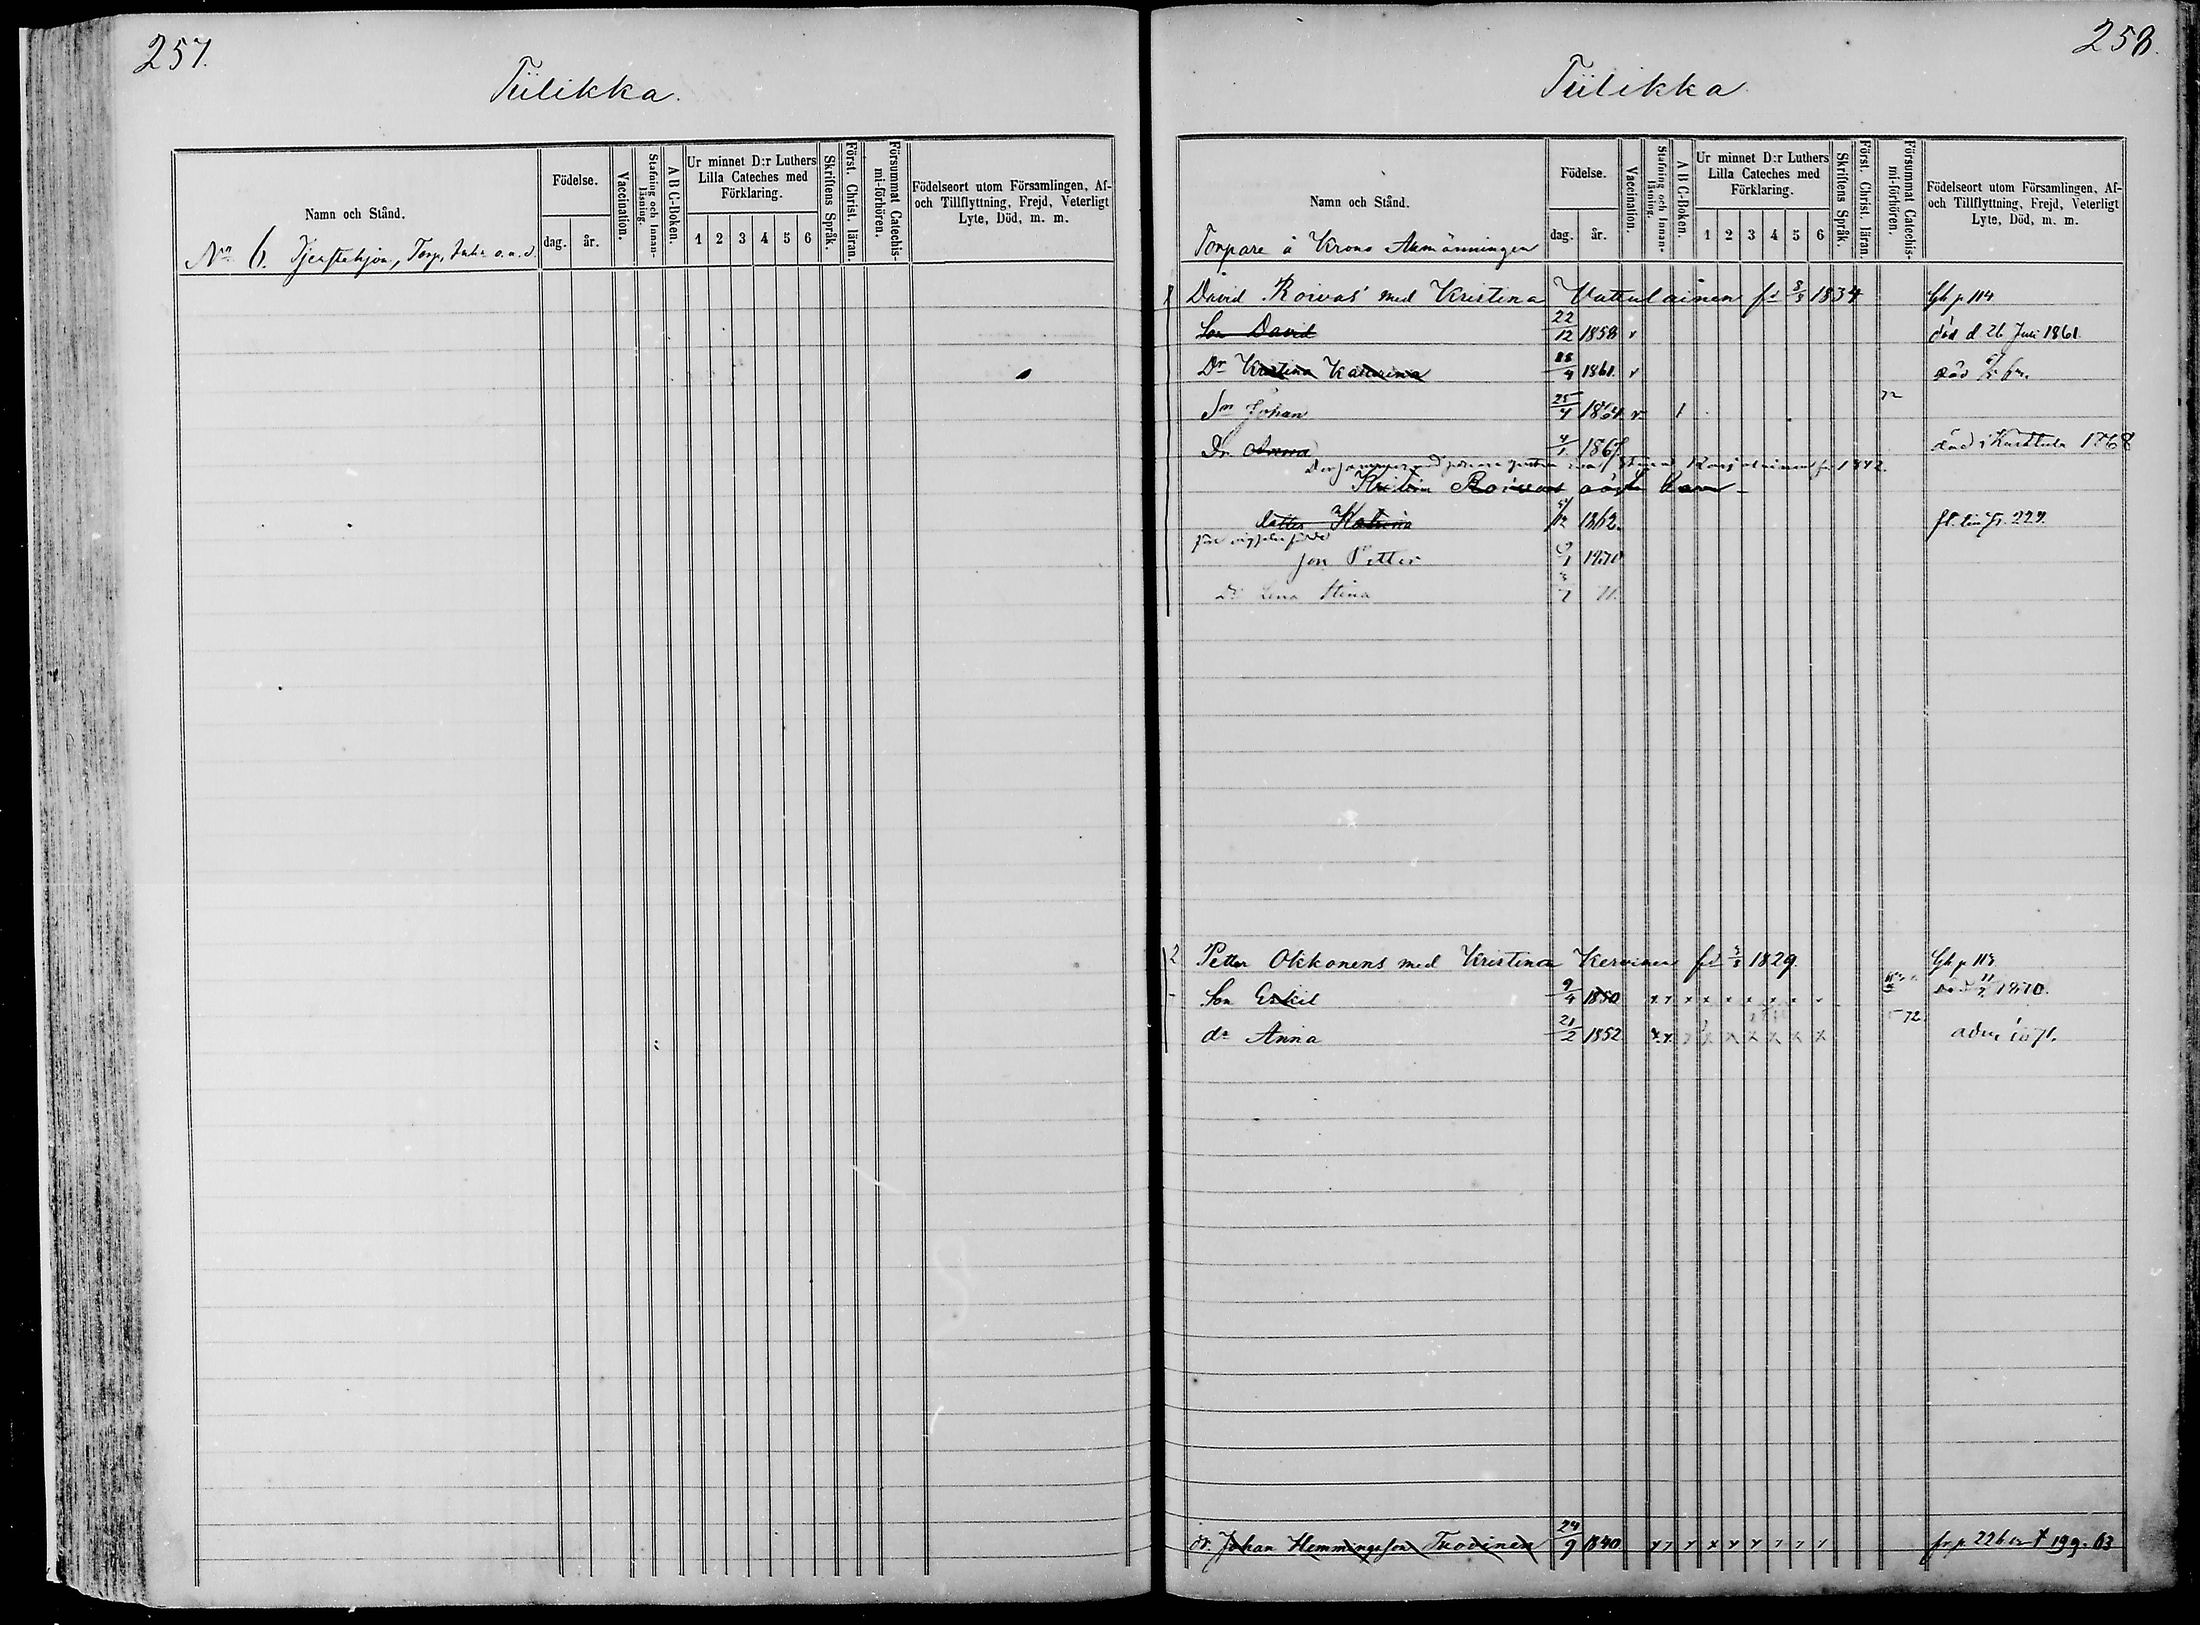 257.
Tiilikka.
Namn och Stånd.
Födelse.
dag.
år.
Vaccination.
Stafning och Innan-läsning.
A B C-Boken.
Ur minnet D:r Luthers Lilla Cateches med Förklaring.
1 2 3 4 5 6
Skriftens Språk.
Först. Christ. läran.
Försummat Catechis-mi-förhören.
Födelseort utom Församlingen, Af- och Tillflyttning, Frejd, Veterligt Lyte, Död, m. m.
No 6. Tjenstehjon, Torp, Inh. o. a. d.
258.
Tiilikka
Namn och Stånd.
Födelse.
dag.
år.
Vaccination.
Stafning och Innan-läsning.
A B C-Boken.
Ur minnet D:r Luthers Lilla Cateches med Förklaring.
1 2 3 4 5 6
Skriftens Språk.
Först. Christ. läran.
Försummat Catechis-mi-förhören.
Födelseort utom Församlingen, Af- och Tillflyttning, Frejd, Veterligt Lyte, Död, m. m.
Torpare å Krono Allmänningen
David Roivas' med Kristina Vattulainen fd 8/3 1834 Gh p 114
Son David 22/12 1858 v död d 26 Juni 1861.
Dr Kristina Katarina 1861. v död
Sn Johan 25/4 1864 v 1
Dr Anna 4/1 1867 död i Karttula 1868
Roivas 1842.
dotter Katrina 1862. p. 229.
son Petter 9/1 1870
Dr Lena Stina 71.
2 Petter Okkonens med Kristina Kervinen fd 1829. Gh p 113
Son Eskil 9/4 1850 x x x x x x x x död 1870.
dr Anna 21/2 1852 x x x x x x x x x 72 adm 1871.
dr. Johan Hemmingsson Tuovinen 24/9 1840 fr p 226 t 199. 63